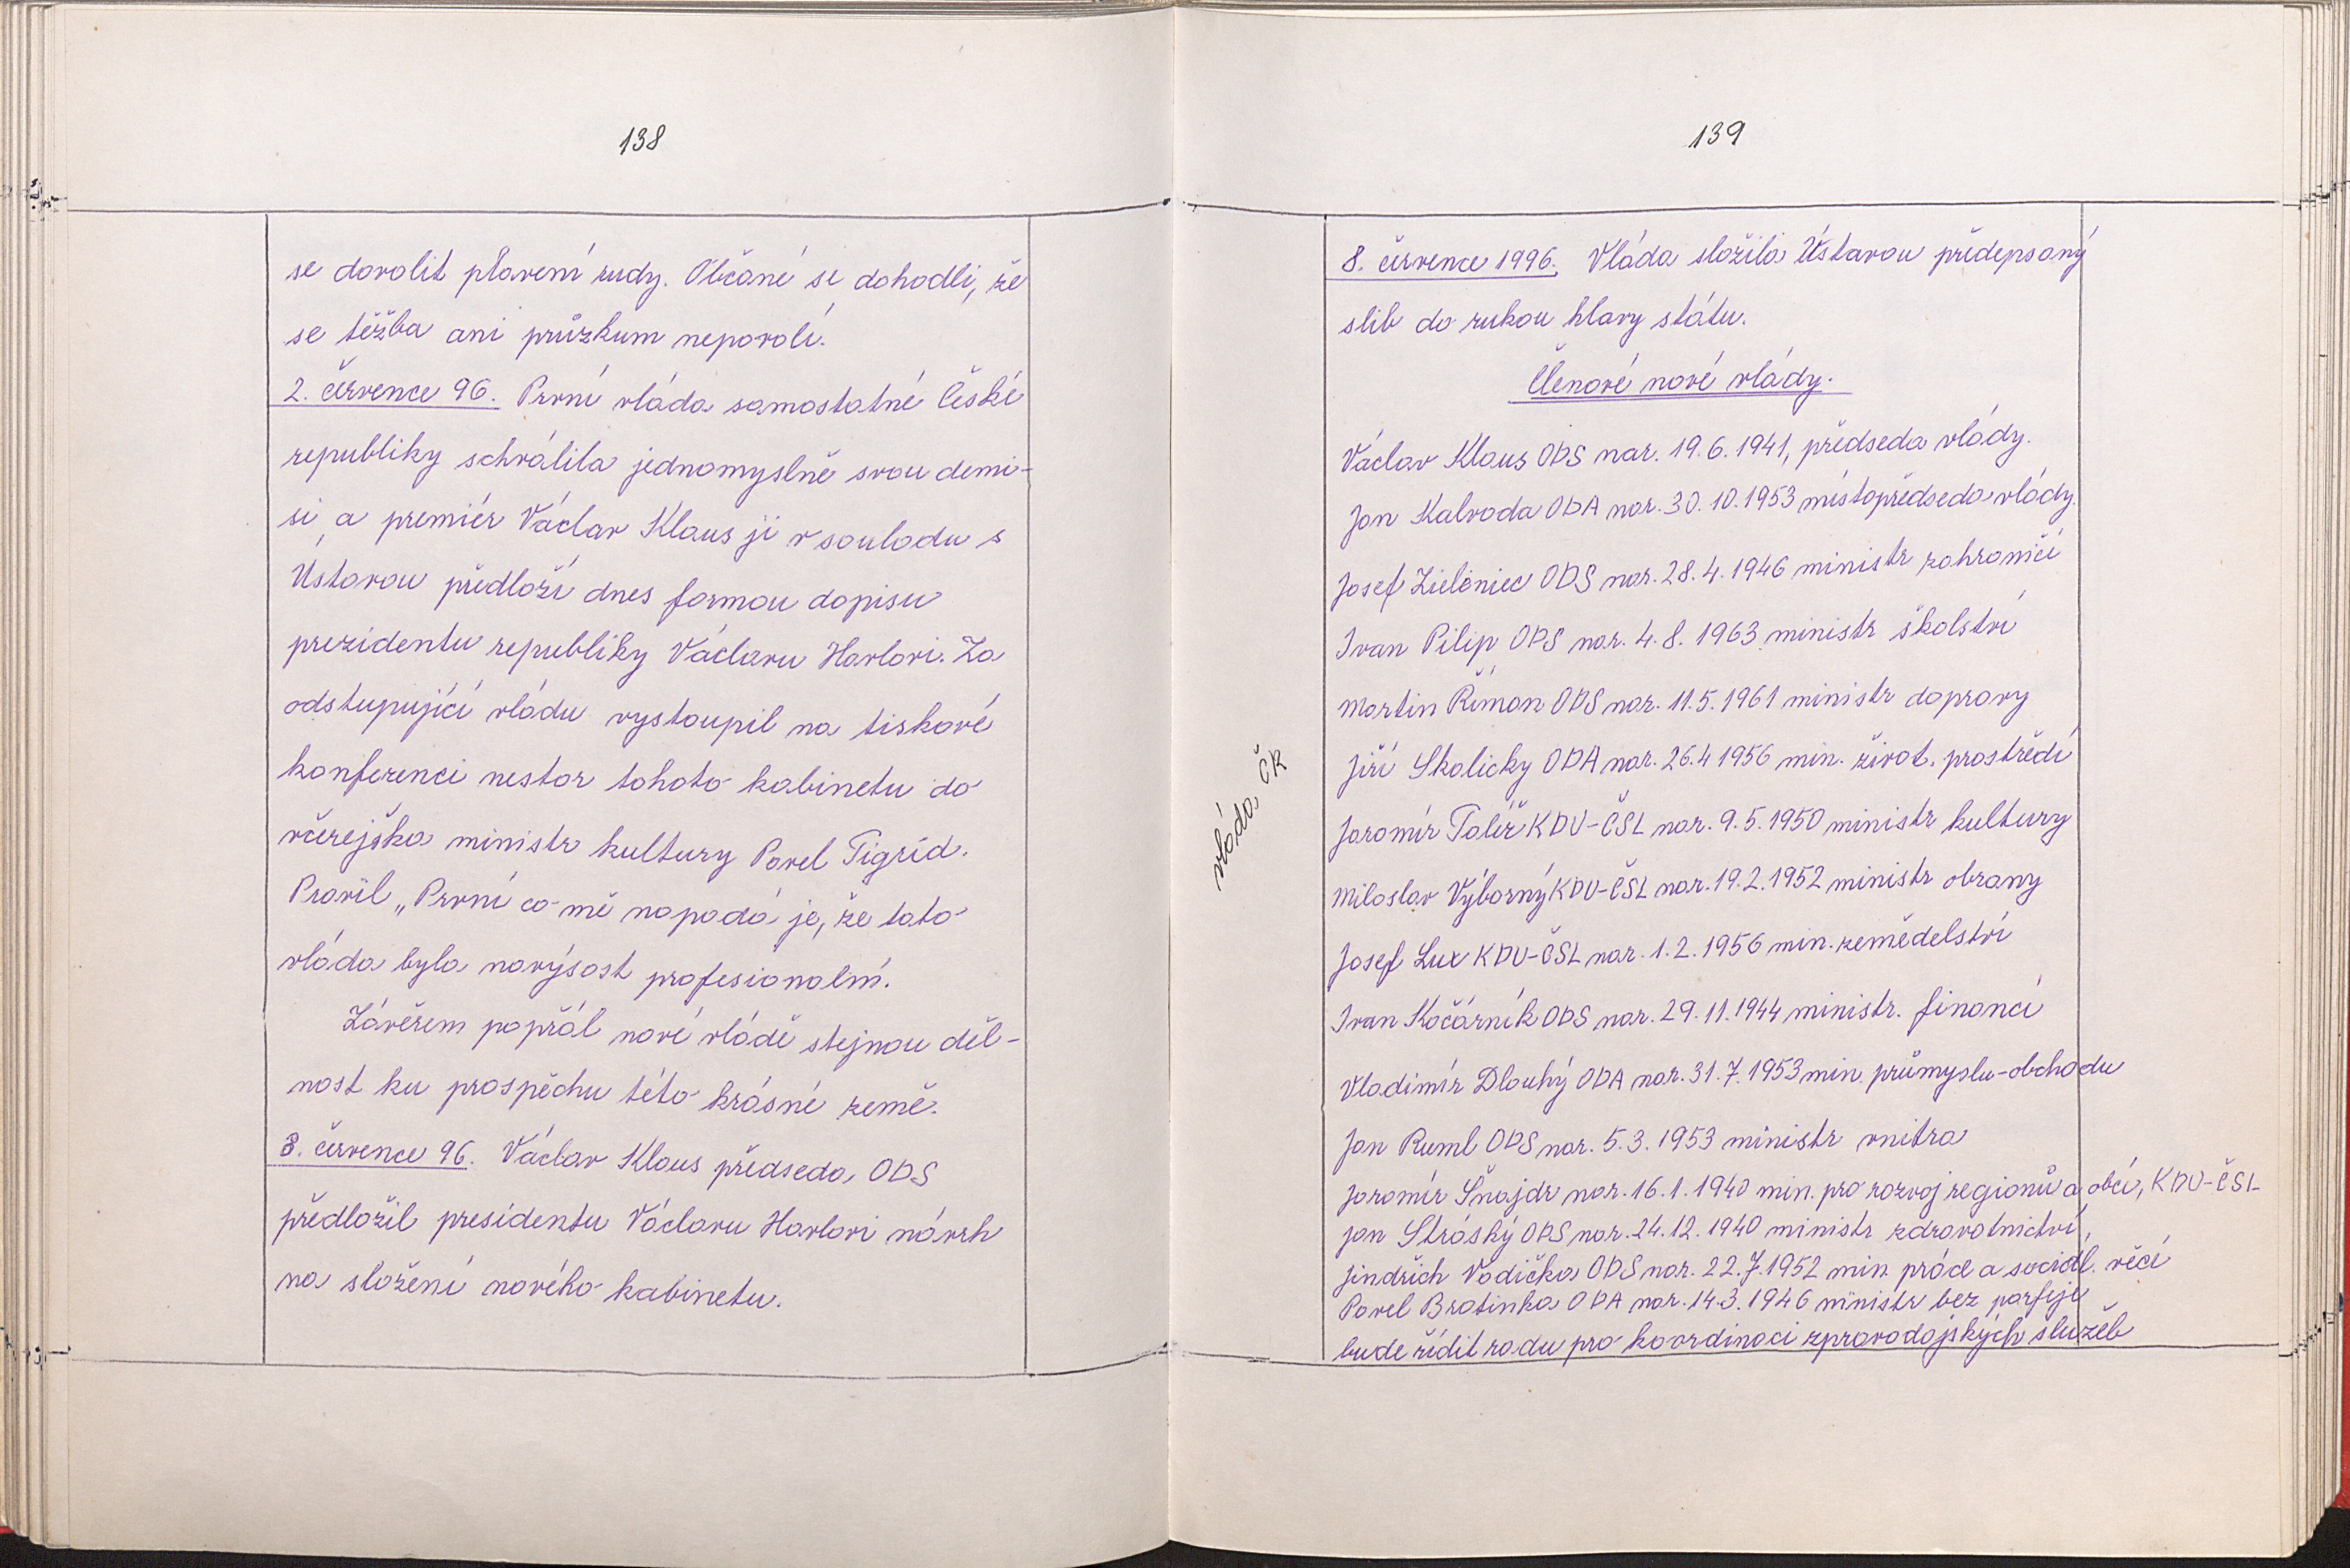 138
se dovolit plavení rudy. Občané se dohodli, že
se těžba ani průzkum nepovolí.
2. července 96. První vláda samostatné České
republiky schválila jednomyslně svou demi-
si, a premiér Václav Klaus ji v souladu s
Ústavou předloží dnes formou dopisu
prezidentu republiky Václavu Havlovi. Za
odstupující vládu vystoupil na tiskové
konferenci nestor tohoto kabinetu do
včerejška ministr kultury Pavel Tigrid.
Pravil „První co mě napadá je, že tato
vláda byla navýsost profesionalní.
Závěrem popřál nové vládě stejnou děl-
nost ku prospěchu této krásné země.
3. července 96. Václav Klaus předseda ODS
předložil presidentu Václavu Havlovi návrh
na složení nového kabinetu.
139
8. července 1996. Vláda složila Ústavou předepsaný
slib do rukou hlavy státu.
Členové nové vlády.
Václav Klaus ODS nar. 19.6.1941, předseda vlády.
Jan Kalvoda ODA nar. 30.10.1953 místopředseda vlády.
Josef Zieleniec ODS nar. 28.4.1946 ministr zahraničí
Ivan Pilip ODS nar. 4.8.1963 ministr školství
Martin Říman ODS nar. 11.5.1961 ministr dopravy
vláda ČR
Jiří Skalicky ODA nar. 26.4 1956 min. život. prostředí
Jaromír Talíř KDU-ČSL nar. 9.5.1950 ministr kultury
Miloslav Výborný KDU-ČSL nar. 19.2.1952 ministr obrany
Josef Lux KDU-ČSL nar. 1.2.1956 min. zemědelství
Ivan Kočárník ODS nar. 29.11.1944 ministr. financí
Vladimír Dlouhý ODA nar. 31.7.1953 min. průmyslu-obchodu
Jan Ruml ODS nar. 5.3.1953 ministr vnitra
Jaromír Šnajdr nar. 16.1.1940 min. pro rozvoj regionů a obcí, KDU-ČSL
Jan Stráský ODS nar. 24.12.1940 ministr zdravotnictví,
Jindřich Vodička ODS nar. 22.7.1952 min. práce a sociál. věcí
Pavel Bratinka ODA nar. 14.3.1946 ministr bez parfeje
bude řídit radu pro koordinaci zpravodajských služeb